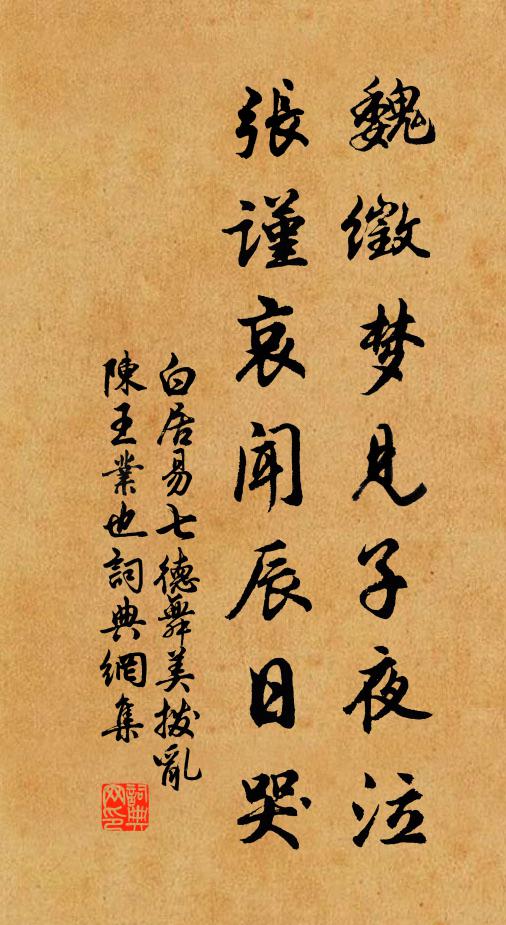 魏徵梦見子夜泣
張謹哀聞辰日哭
白居易七德舞美撥亂
陳王業也詞典網集
詞典网印